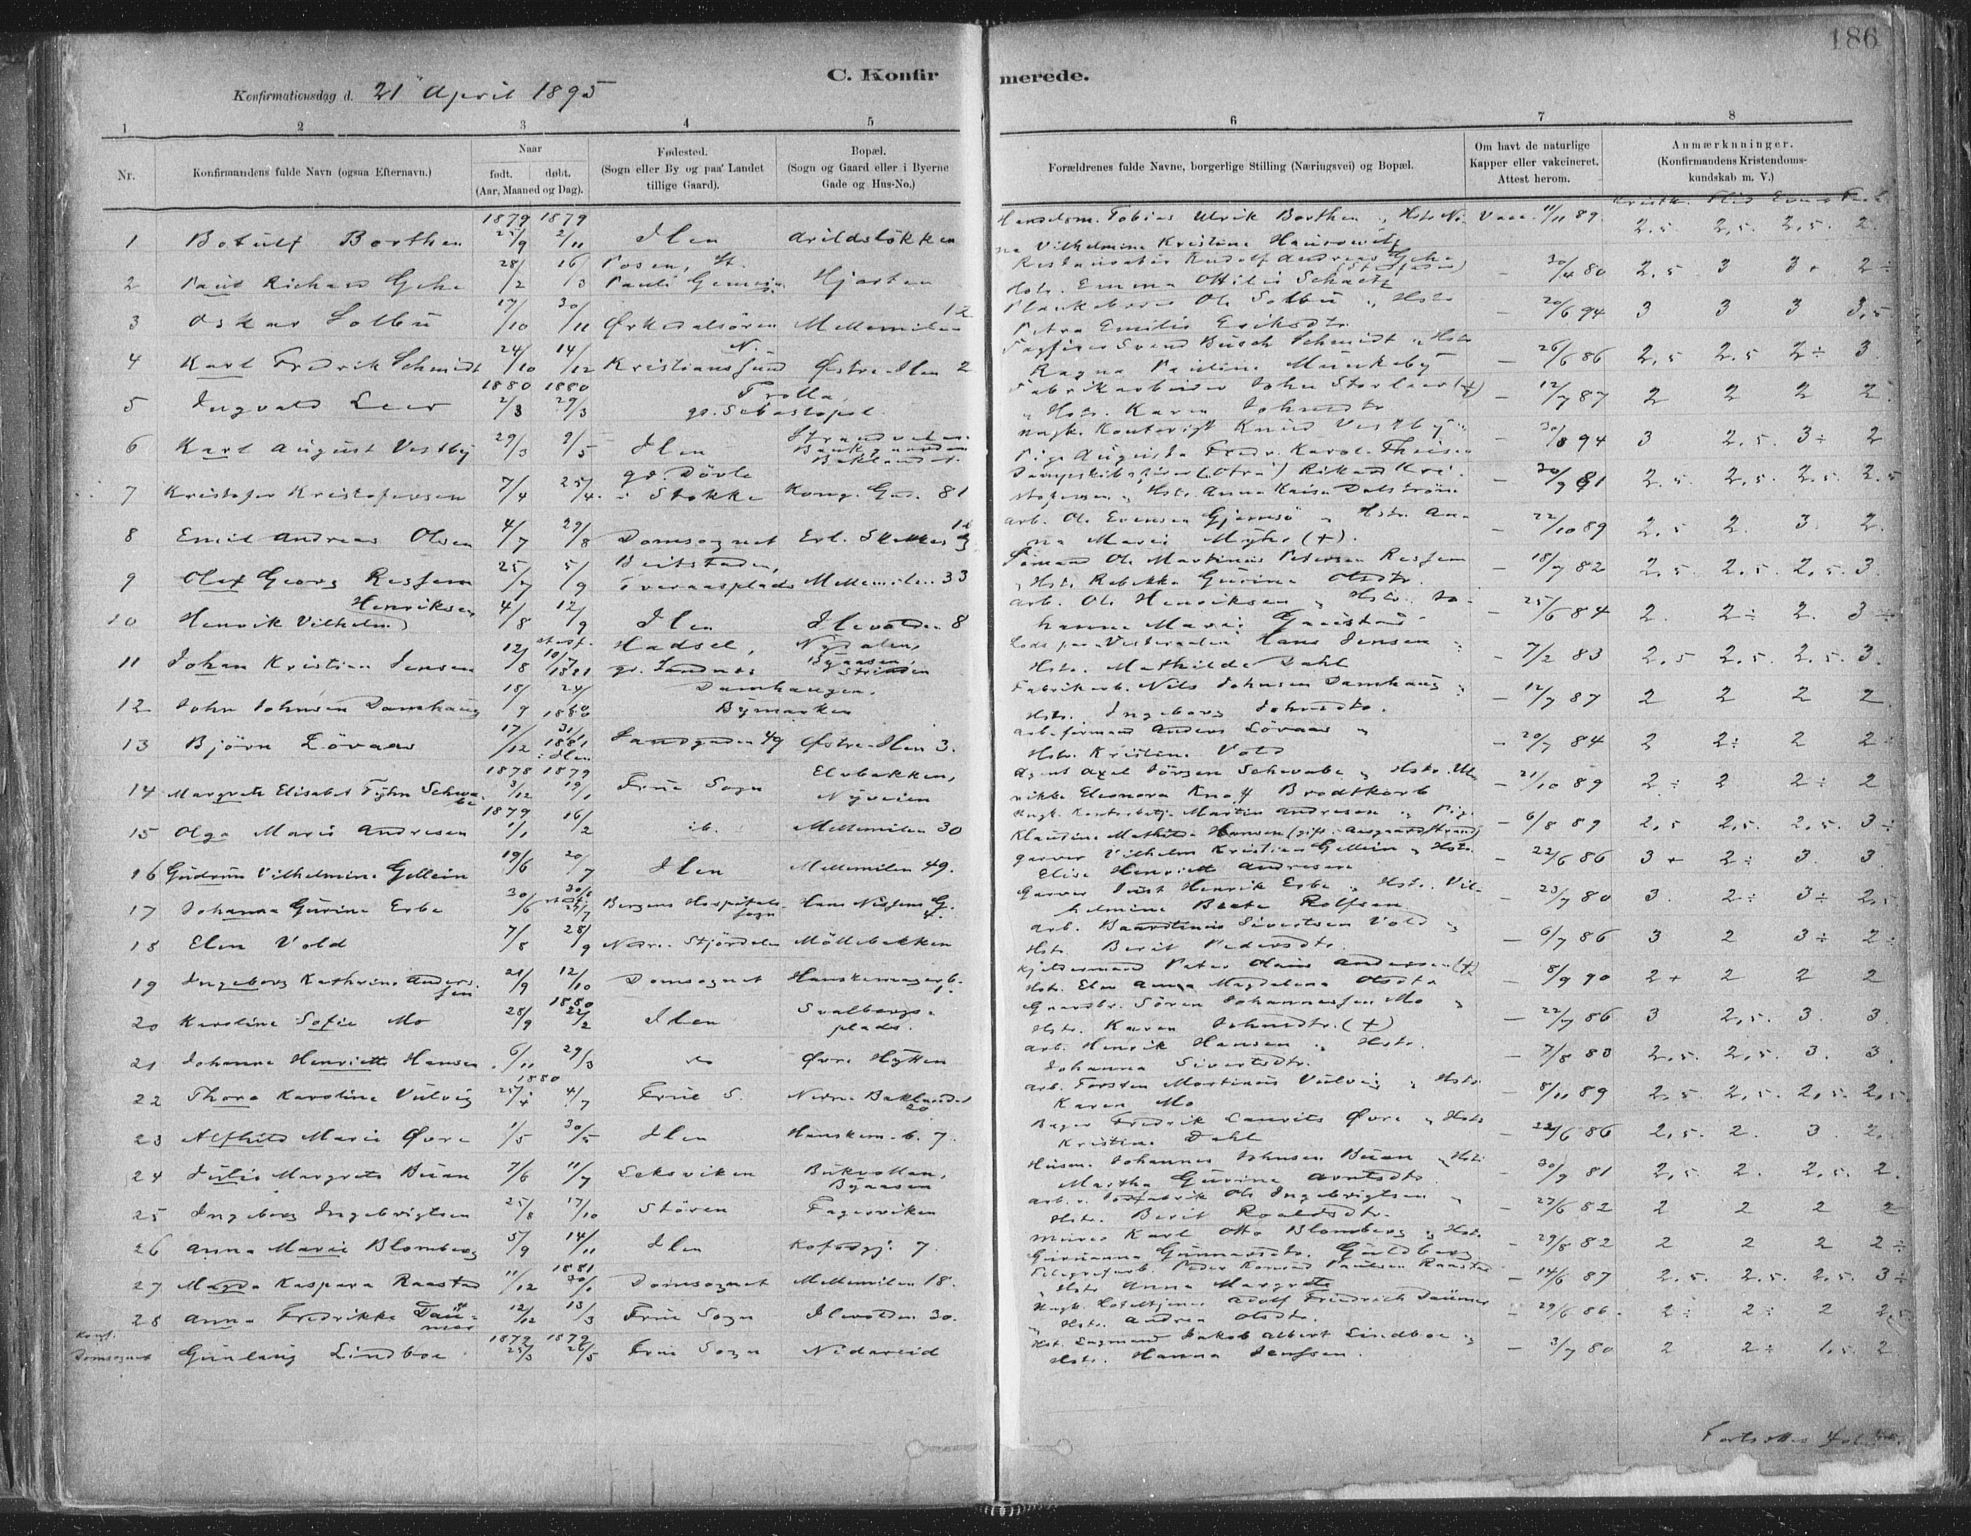 186
C. Konfirmerede.
Konfirmationsdag d. 21 April 1895
1 2 3 4 5 6 7 8
Nr. Konfirmandens fulde Navn (ogsaa Efternavn.) Naar født. døbt. (Aar, Maaned og Dag). Fødested. (Sogn eller By og paa Landet tillige Gaard). Bopæl. (Sogn og Gaard eller i Byerne Gade og Hus-No.) Forældrenes fulde Navne, borgerlige Stilling (Næringsvei) og Bopæl. Om havt de naturlige Kopper eller vakcineret. Attest herom. Anmærkninger. (Konfirmandens Kristendoms-kundskab m. V.)
1879 1879
1 Botulf Borthen 25/9 2/11 Ilen Arildsløkken Tobias Ulrik Borthen Vacc. 11/11 89. 2,5 2,5. 2,5. 2.
Vilhelmine Kristine
2 Paul Richard Gehe 28/2 16/3 Posen, St. Pauli Hjorten Restauratør Rudolf Andreas Gehe – 30/4 80 2,5 3 3+ 2÷
Hstr. Emma Ottilie
3 Oskar Solbu 17/10 30/11 Ørkedalsøren Mellemilen 12 Ole Solbu, Hstr. Petra Emilie Eriksdtr. – 20/6 94 3 3 3 3,5
4 Karl Fredrik Schmidt 24/10 14/12 Kristianssund N. Østre Ilen 2 Fagfører Svend Busch Schmidt, Hstr. Ragna Pauline – 26/6 86 2,5 2,5 2÷ 3
1880 1880
5 Ingvald Leer 2/3 29/3 Trolla, gd. Sebastopol Fabrikarbeider John Storleer (+), Hstr. Karen Johnsdtr. – 12/7 87 2 2 2 2
6 Karl August Vestby 29/3 9/5 Ilen Baklandet. Ungk. Kontorist Knud Vestby, Pige Augusta Fredr. Karol. – 30/8 94 3 2,5. 3÷ 2
7 Kristofer Kristofersen 7/4 25/4. gd. Stokke Kong. Gd. 81 Dampskibsfører Rikard Kristofersen, Hstr. Anna Kaisa Dalstrøm – 20/9 81 2,5. 2,5. 2,5. 2,5
8 Emil Andreas Olsen 4/7 29/8 Domsognet Arb. Ole Evensen Gjemsø, Hstr. Anna Marie (+). – 22/10 89 2,5 2. 3. 2.
9 Olaf Georg Ressem 25/7 5/9 Beitstaden, Tveraasplads Mellemilen 33 Sømand Ole Martinus Petersen Ressem, Hstr. Rebekka Gurine Olsdtr. – 18/7 82 2,5. 2,5. 2,5. 3.
10 Henrik Vilhelm Henriksen 4/8 12/9 Ilen Ilevolden 8 Arb. Ole Henriksen, Hstr. Johanne Marie – 25/6 84 2. 2÷ 2. 3÷
11 Johan Kristian Jensen 12/8 1881 Hadsel, gd. Sandnes Nydalen, Byaasen, Strinden Lods paa Vesteraalen Hans Jensen, Hstr. Mathilde Dahl – 7/2 83 2,5 2,5. 2,5. 3.
12 John Johnsen Damhaug 18/9 24/10 1880 Damhaugen, Bymarken Fabrikarb. Nils Johnsen Damhaug, Hstr. Ingeborg Johnsdtr. – 12/7 87 2 2 2 2
13 Bjørn Løvaas 17/12 31/1 1881 i Ilen Sandgaden 49 Østre Ilen 3. Arb.formand Anders Løvaas, Hstr. Kristine Vold – 20/7 84 2 2÷ 2 2÷
1878 1879
14 Margrete Elisabet Tyhn Schwabe 3/12 19/1 Frue Sogn Elvebakken, Nyveien Agent Axel Jørgen Schwabe, Hstr. Ulrikke Eleonora Knoff Brodtkorb – 21/10 89 2÷ 2 2÷ 2
1879
15 Olga Marie Andresen 1/1 16/2 ib. Mellemilen 30 Ungk. Martin Andresen, Pige Klaudine Mathilde Hansen – 6/8 89 2,5 2,5. 2,5. 3÷
16 Gudrun Vilhelmine Gellein 19/6 20/7 Ilen Mellemilen 49. Garver Vilhelm Kristian Gellein, Hstr. Elise Henriette Andresen – 22/6 86 3+ 2÷ 3. 3.
17 Johanna Gurine Erbe 30/6 Bergens Hospitals-sogn Hans Nissens G. Garver Just Henrik Erbe, Hstr. Vilhelmine Beate Rolfsen – 23/7 80 3. 2÷ 3÷ 2,5
18 Elen Vold 7/8 28/9 Nedre Stjørdalen Møllebakken Arb. Baardtinus Sivertsen Vold, Hstr. Berit Pedersdtr. – 6/7 86 3 2 3÷ 2÷
19 Ingeborg Kathrine Andersen 21/9 12/10 Domsognet Kjeldermand Peter Olaus Andersen (+), Hstr. Elen Anna Magdalena Olsdtr. – 8/9 90 2+ 2 2 2
1880
20 Karoline Sofie Mo 28/9 22/2 Ilen Svalbergs-plads. Gaardbr. Søren Johannessen Mo, Hstr. Karen Johnsdtr. (+) – 22/7 86 3 2,5. 3. 3.
21 Johanne Henriette Hansen 6/11 29/3 do Øvre Hytten Arb. Henrik Hansen, Hstr. Johanna Sivertsdtr. – 7/8 83 2,5. 2,5. 3. 3.
1880
22 Thora Karoline Vulvig 25/4 4/7 Frue S. Nedre Baklandet 20 Arb. Torsten Martinus Vulvig, Hstr. Karen Mo – 8/11 89 2,5. 2,5. 2,5. 2,5.
23 Alfhild Marie Øvre 1/5 30/5 Ilen Hanskem.b. 7. Bager Fredrik Laurits Øvre, Hstr. Kristine Dahl – 22/6 86 2,5. 2. 3. 2.
24 Julie Margrete Buan 7/6 11/7 Leksviken Bukvollen, Byaasen Husm. Johannes Johnsen Buan, Hstr. Martha Gurine Arntsdtr. – 30/9 81 2,5 2. 2,5. 2.
25 Ingeborg Ingebrigtsen 25/8 17/10 Støren Fagerviken Arb. v. Ole Ingebrigtsen, Hstr. Berit Roaldsdtr. – 27/6 82 2 2 2 2
26 Anna Marie Blomberg 5/9 14/11 Ilen 7. Murer Karl Otto Blomberg, Hstr. Gurianna Gunnarsdtr. Guldberg – 29/8 82 2 2 2 2÷
1881
27 Magda Kaspara Raastad 11/12 30/1 Domsognet Mellemilen 18. Telegrafarb. Peder Konrad Paulsen Raastad, Hstr. Anna Margrete – 14/6 87 2,5. 2,5. 2,5. 3÷
28 Anna Fredrikke 12/12 13/3 Frue Sogn Ilevolden 30. Ungk. Hoteltjener Adolf Friedrich, Hstr. Andrea Olsdtr. – 29/6 86. 2÷ 2÷ 2 2,5
Konf. Domsognet
1879 1879
Gunlaug Lindboe 25/3 26/5 Frue Sogn Nidareid Jakob Albert Lindboe, Hstr. Hanna Jenssen. – 3/7 80 2 2÷ 1,5. 2
Fortsættes